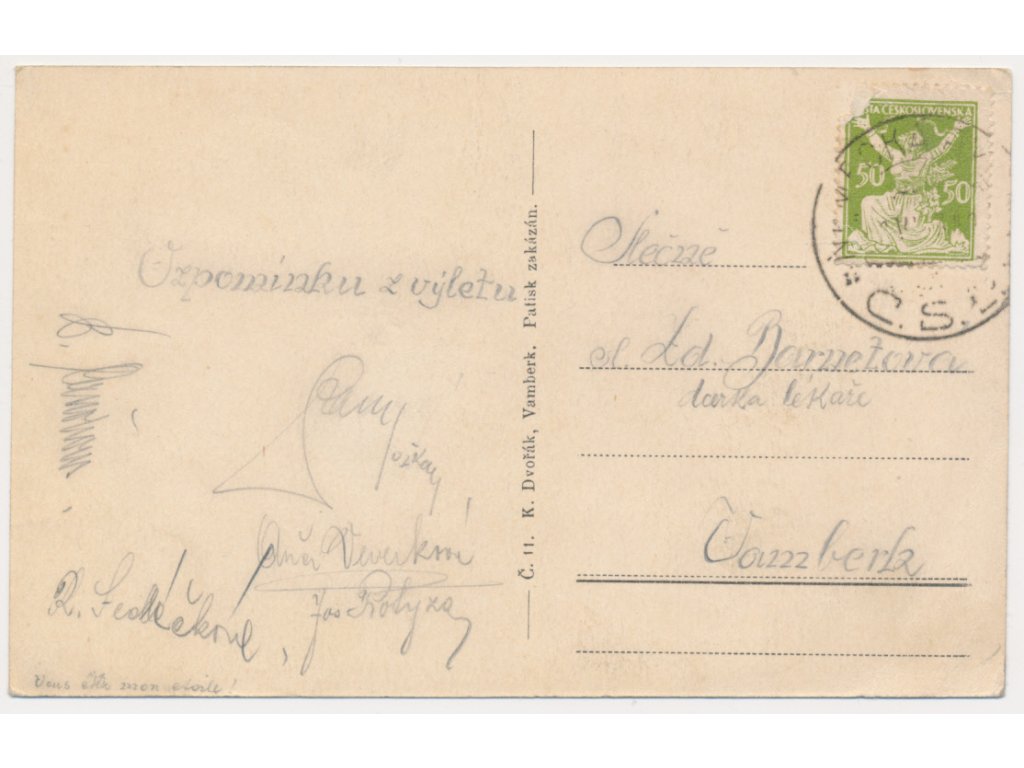 Vzpomínku z výletu
Anči Veverková
Jos Rotyza
R. Sedláčková,
Vous être mon etoile!
Č. 11. K. Dvořák, Vamberk. Patisk zakázán.
ŠTA ČESKOSLOVENSKÁ
50 50
Č.S.
Slečně
sl. Zd. Barnetova
dcerka lékaře
Vamberk